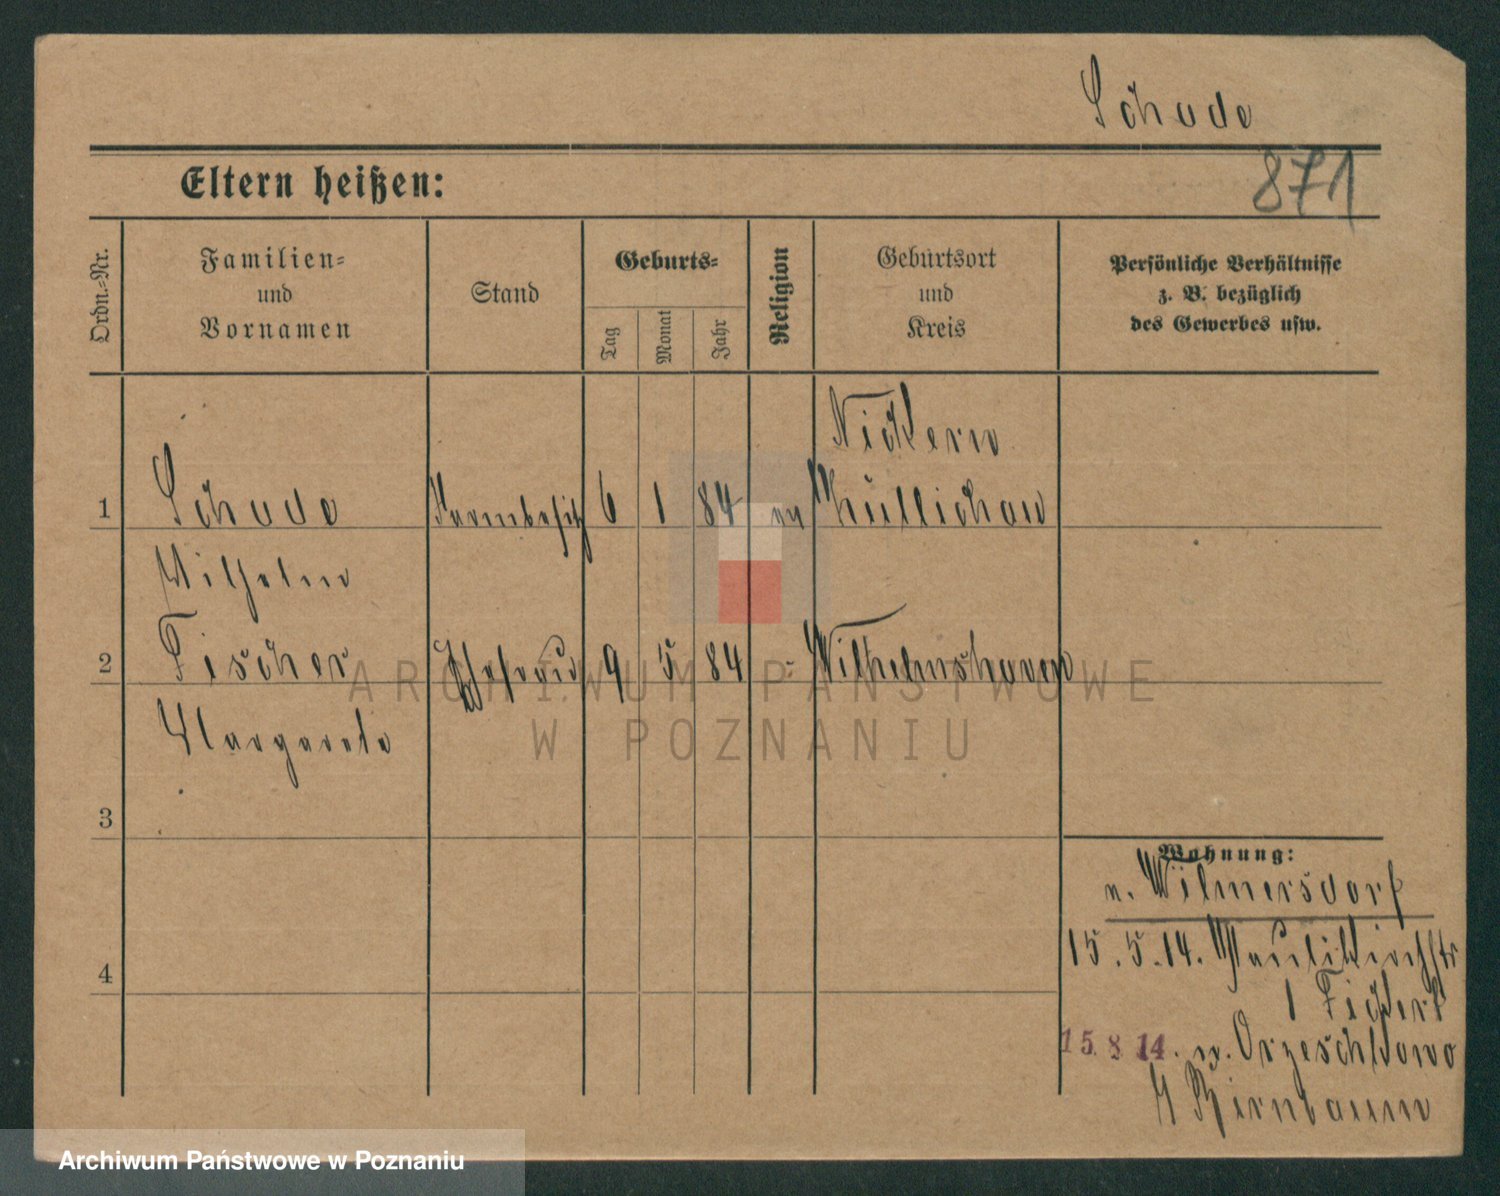 Schude
871
Eltern heißen:
Ordn.-Nr.
Familien-
und
Vornamen
Stand
Geburts-
Tag
Monat
Jahr
Religion
Geburtsort
und
Kreis
Persönliche Verhältnisse
z. B. bezüglich
des Gewerbes usw.
Nickern
1 Schude Farmbesitz 6 1 84 ev Züllichau
Wilhelm
2 Fischer Ehefrau 9 5 84 - Wilhelmshaven
Margarete
3
4
Wohnung:
n. Wilmersdorf
15.5.14. Paulikirchstr
1 Fickert
15 8 14. n. Orzeschkowo
Birnbaum
ARCHIWUM PAŃSTWOWE
W POZNANIU
Archiwum Państwowe w Poznaniu